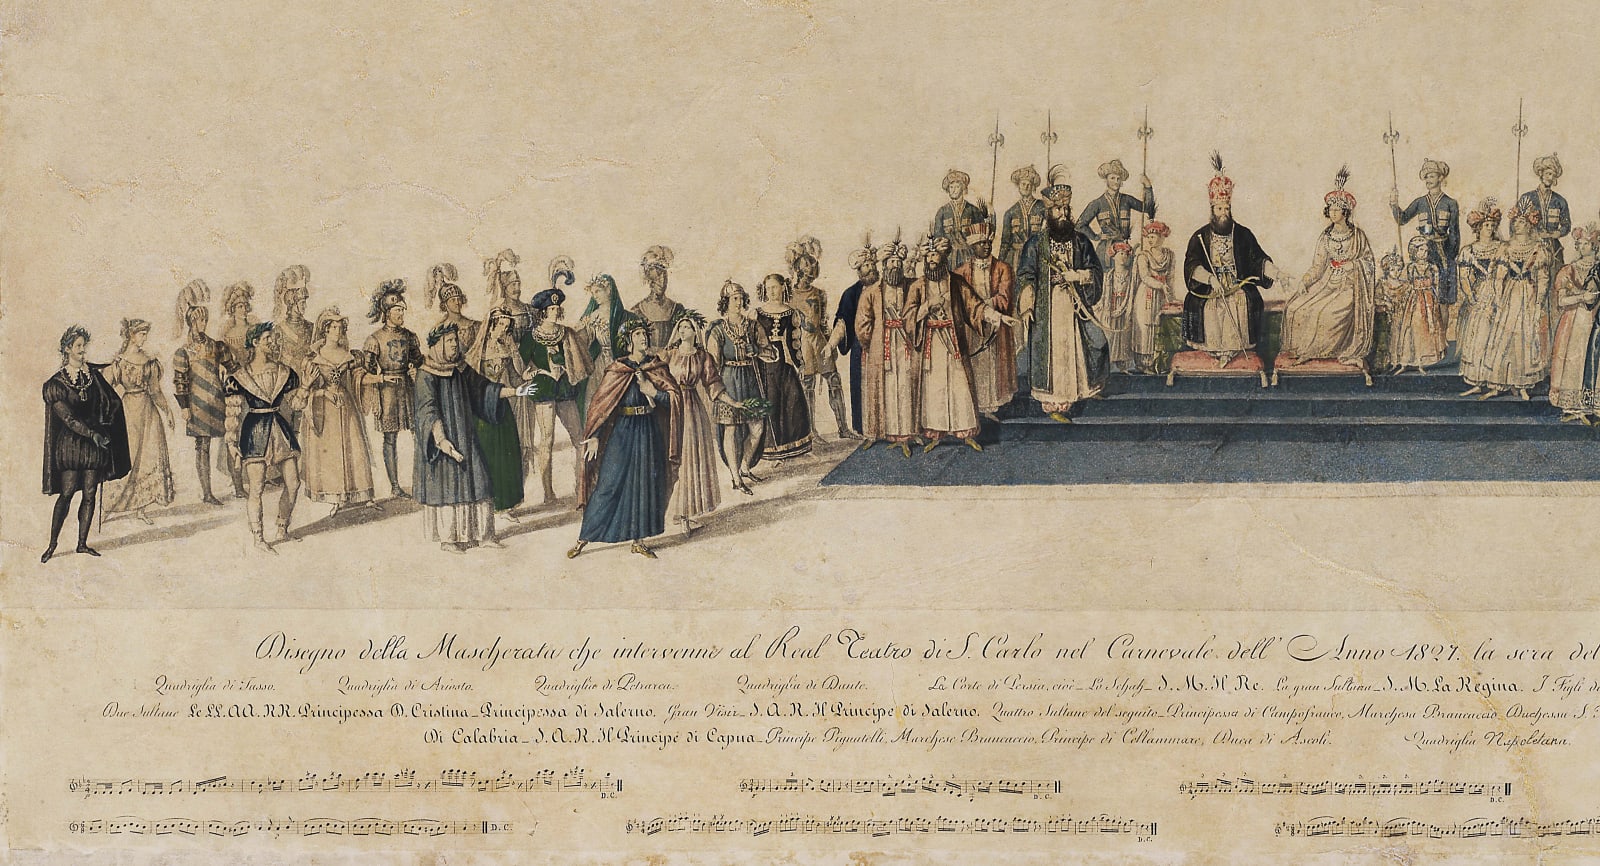 Disegno della Mascherata che intervenne al Real Teatro di S. Carlo nel Carnevale dell' Anno 1827. la sera del
Quadriglia di Tasso. Quadriglia di Ariosto. Quadriglia di Petrarca. Quadriglia di Dante. La Corte di Persia, cioè_ Lo Schah_ S. M. Il Re. La gran Sultana_ S. M. La Regina. I Figli
Due Sultane Le LL. AA. RR. Principessa D. Cristina_Principessa di Salerno. Gran Visir_ S. A. R. Il Principe di Salerno. Quattro Sultane del seguito_Principessa di Campofranco, Marchesa Brancaccio, Duchessa S.
Di Calabria_ S. A. R. Il Principe di Capua_Principe Pignatelli, Marchese Brancaccio, Principe di Cellammare, Duca di Ascoli. Quadriglia Napoletana.
D. C. D. C. D. C.
D. C. D. C.